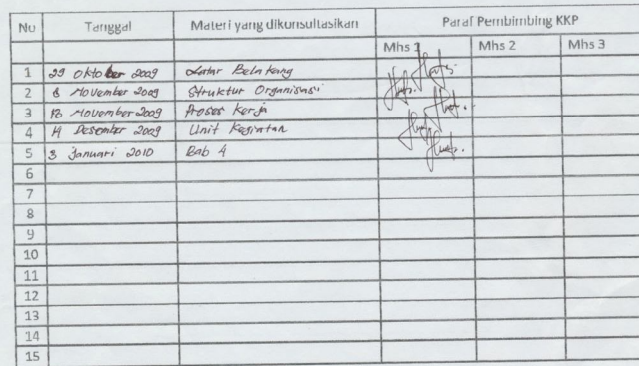 No Tanggal Materi yang dikonsultasikan Paraf Pembimbing KKP
Mhs 1 Mhs 2 Mhs 3
1 29 Oktober 2009 Latar Belakang
2 8 November 2009 Struktur Organisasi
3 November 2009 Proses Kerja
4 14 Desember 2009 Unit Kegiatan
5 3 Januari 2010 Bab 4
6
7
8
9
10
11
12
13
14
15